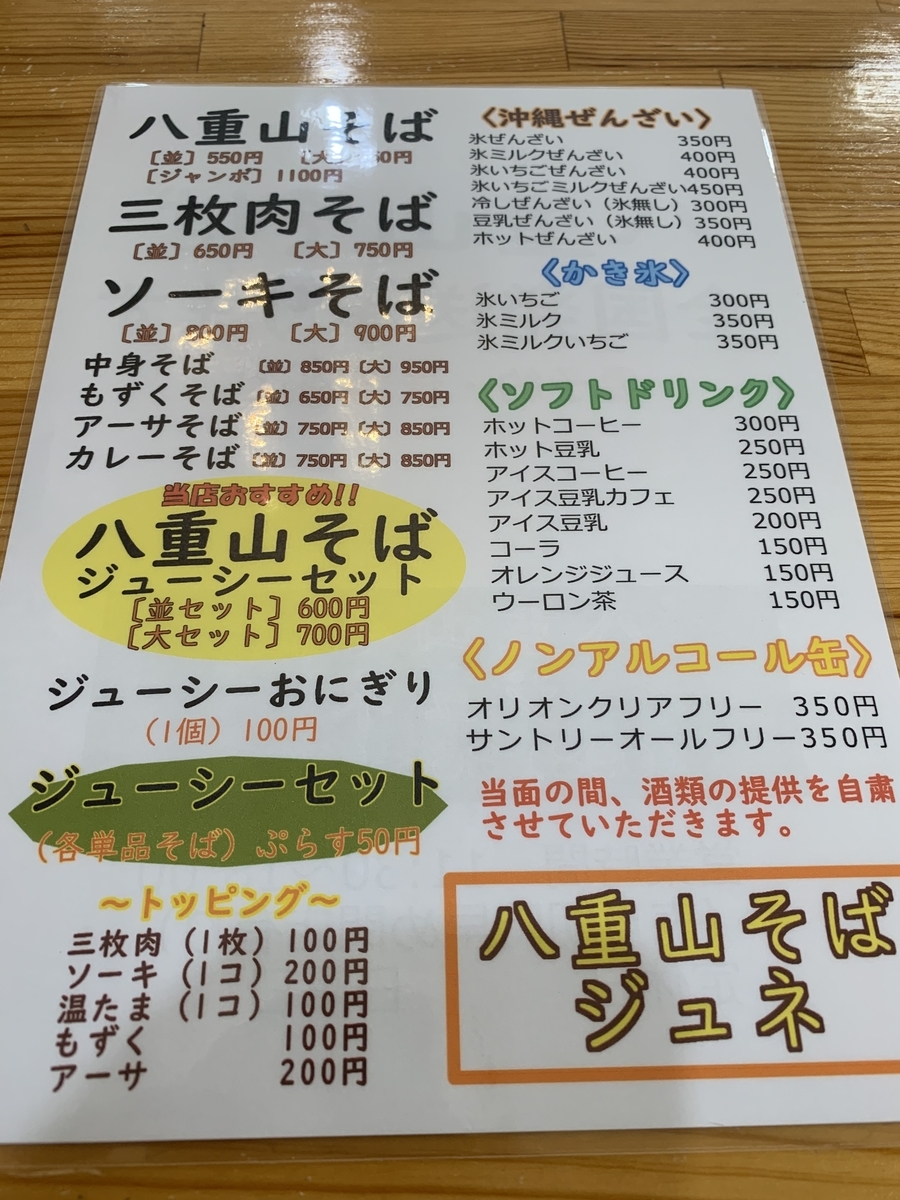 八重山そば
［並］550円 ［大］ 50円
［ジャンボ］1100円
三枚肉そば
［並］650円 ［大］750円
ソーキそば
［並］800円 ［大］900円
中身そば ［並］850円［大］950円
もずくそば ［並］650円［大］750円
アーサそば ［並］750円［大］850円
カレーそば ［並］750円［大］850円
当店おすすめ!!
八重山そば
ジューシーセット
［並セット］600円
［大セット］700円
ジューシーおにぎり
（1個）100円
ジューシーセット
（各単品そば）ぷらす50円
～トッピング～
三枚肉（1枚）100円
ソーキ（1コ）200円
温たま（1コ）100円
もずく 100円
アーサ 200円
〈沖縄ぜんざい〉
氷ぜんざい 350円
氷ミルクぜんざい 400円
氷いちごぜんざい 400円
氷いちごミルクぜんざい450円
冷しぜんざい（氷無し）300円
豆乳ぜんざい（氷無し）350円
ホットぜんざい 400円
〈かき氷〉
氷いちご 300円
氷ミルク 350円
氷ミルクいちご 350円
〈ソフトドリンク〉
ホットコーヒー 300円
ホット豆乳 250円
アイスコーヒー 250円
アイス豆乳カフェ 250円
アイス豆乳 200円
コーラ 150円
オレンジジュース 150円
ウーロン茶 150円
〈ノンアルコール缶〉
オリオンクリアフリー 350円
サントリーオールフリー350円
当面の間、酒類の提供を自粛
させていただきます。
八重山そば
ジュネ